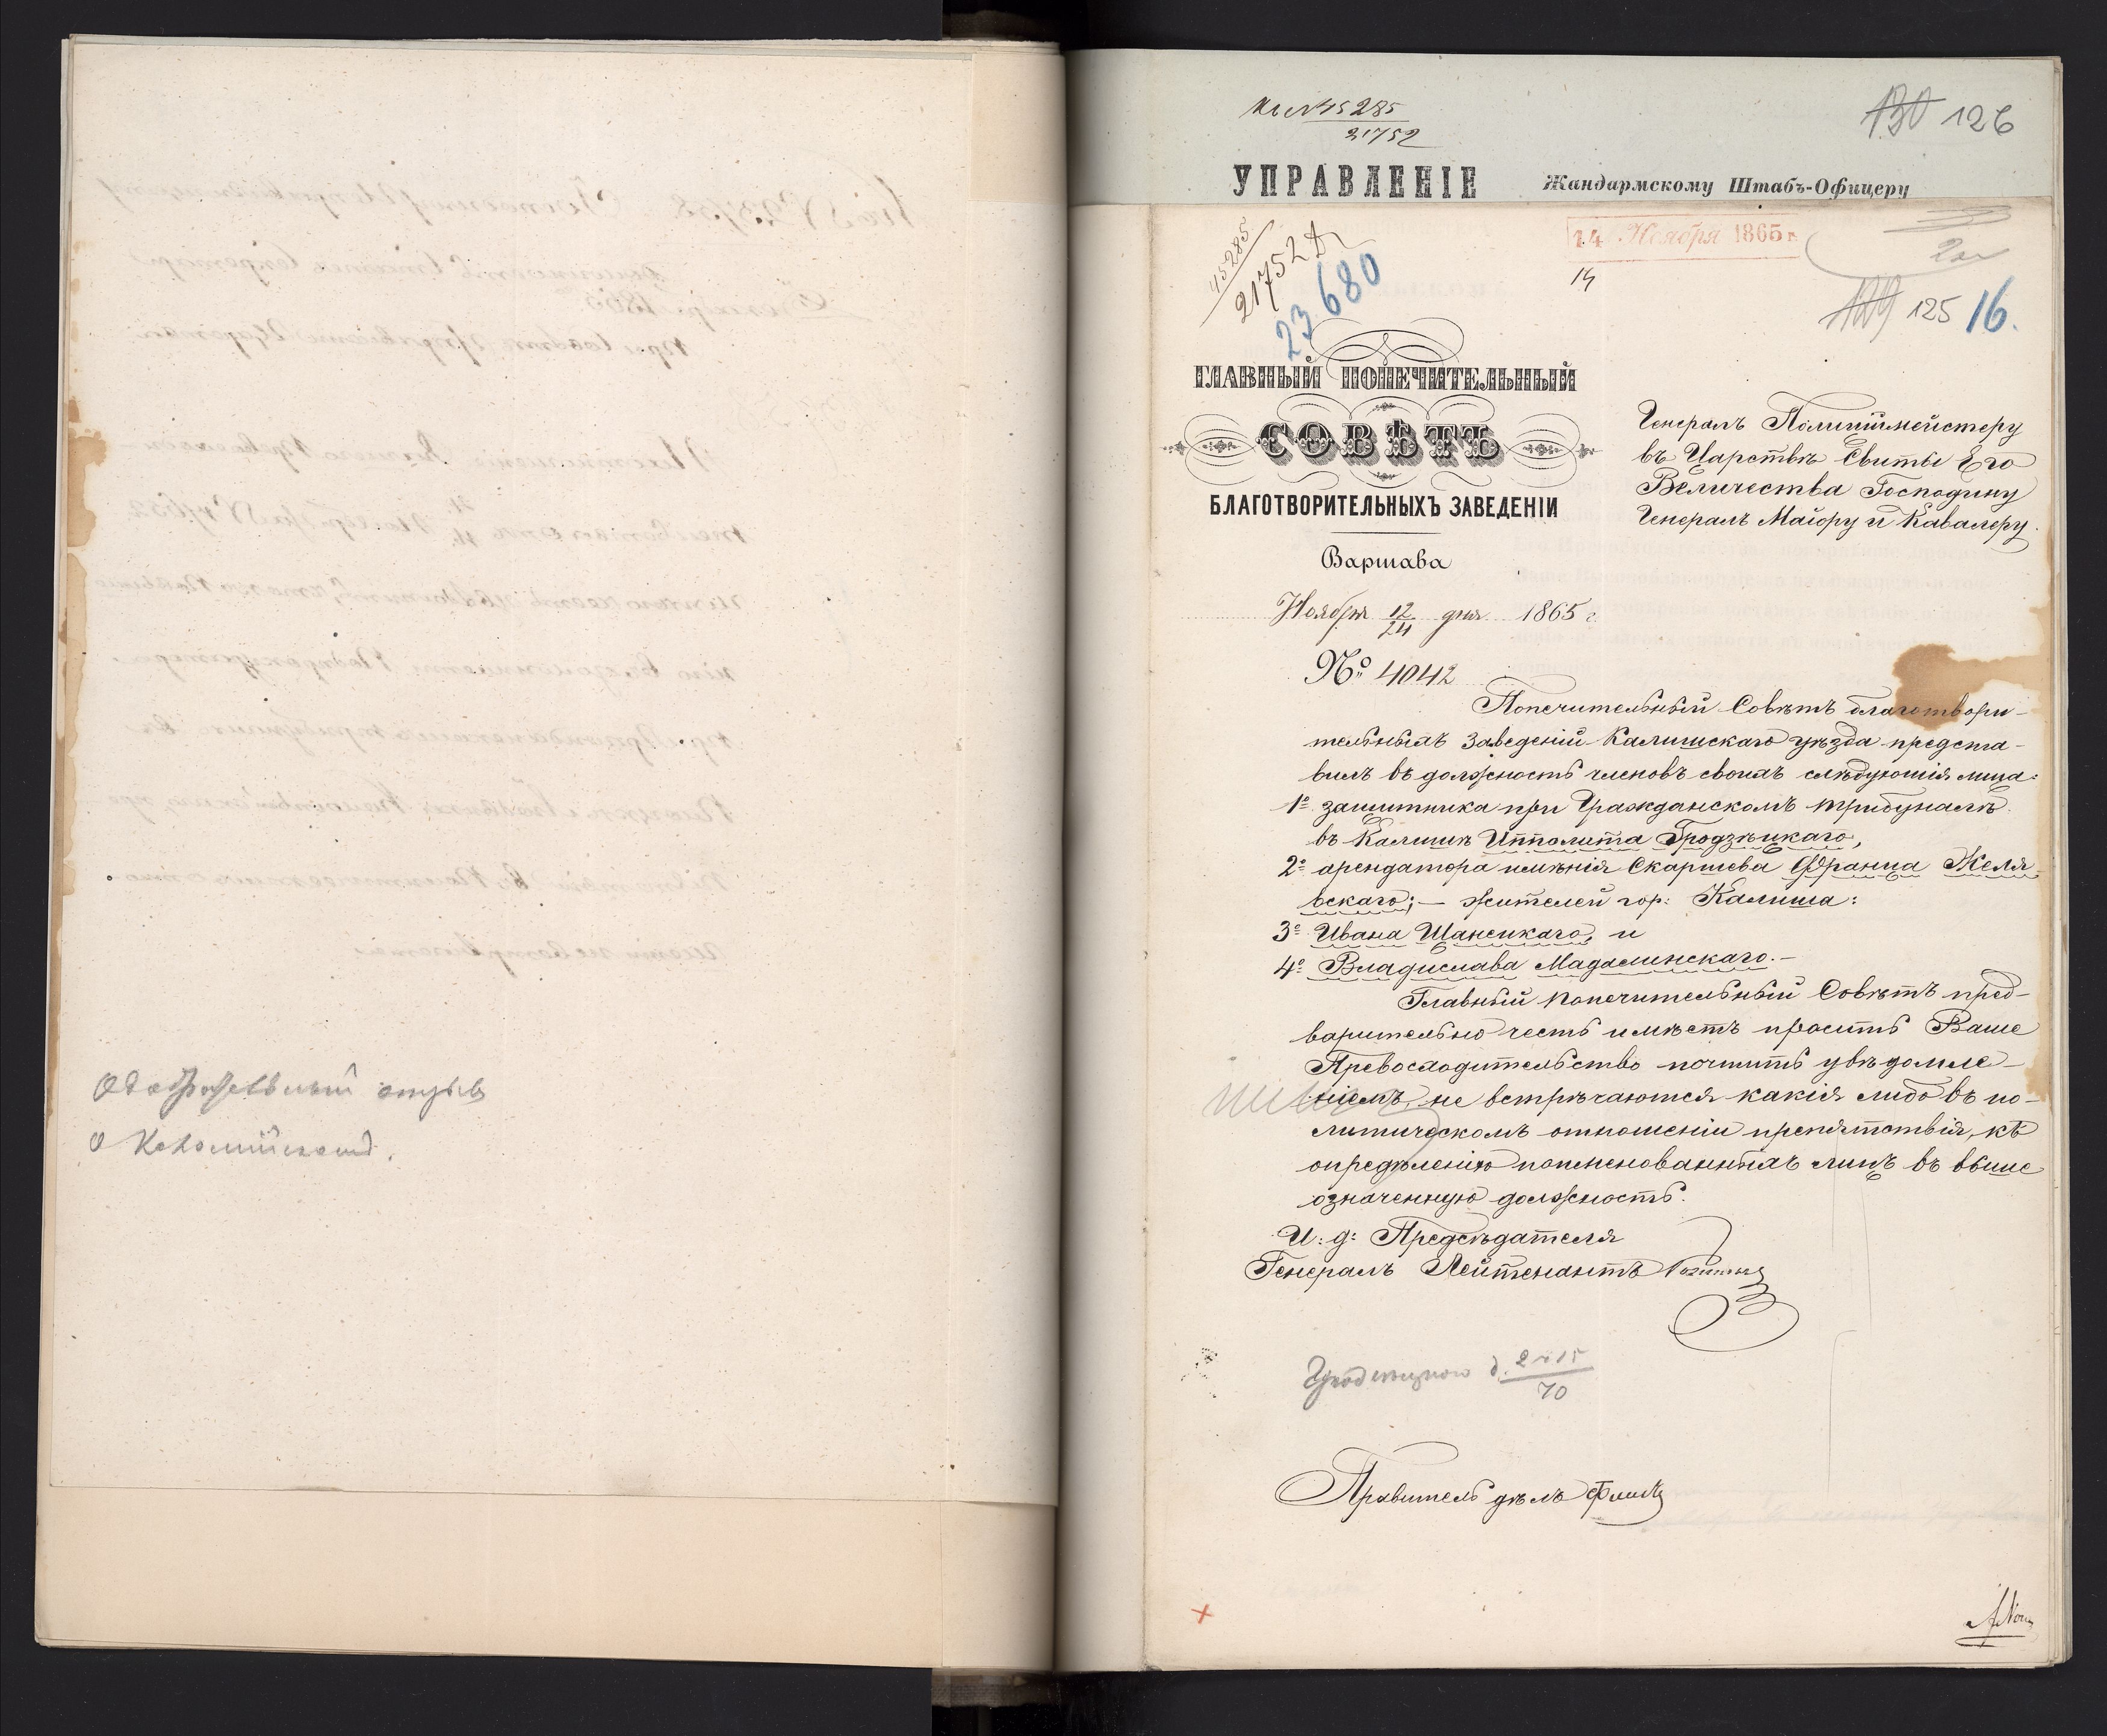 Одобрительный отзыв
о
къ № 45285
21752
130 126
УПРАВЛЕНІЕ
Жандармскому Штабъ-Офицеру
45285
21752
23680
14 Ноября 1865 г.
14
129 125 16.
ГЛАВНЫЙ ПОПЕЧИТЕЛЬНЫЙ
СОВѢТЪ
БЛАГОТВОРИТЕЛЬНЫХЪ ЗАВЕДЕНІЙ
Варшава
Ноября 12/24 дня 1865 г.
№ 4042
Генералъ Полиціймейстеру
въ Царствѣ Свиты Его
Величества Господину
Генералъ Маіору и Кавалеру.
Попечительный Совѣтъ благотвори-
тельныхъ Заведеній Калишскаго уѣзда предста-
вилъ въ должность членовъ своихъ слѣдующія лица:
1º защитника при Гражданскомъ трибуналѣ
въ Калишѣ Ипполита Гродзѣцкаго,
2º арендатора имѣнія Скаршева Франца Желя-
вскаго; — жителей гор: Калиша:
3º Ивана Шанецкаго, и
4º Владислава Мадалинскаго. —
Главный попечительный Совѣтъ пред-
варительно честь имѣетъ просить Ваше
Превосходительство почтить увѣдомле-
ніемъ, не встрѣчаются какія либо въ по-
литическомъ отношеніи препятствія, къ
опредѣленію поименованныхъ лицъ въ выше
означенную должность.
И: д: Предсѣдателя
Генералъ Лейтенантъ
Гродзецкого д. 2 № 15
70
Правитель дѣлъ